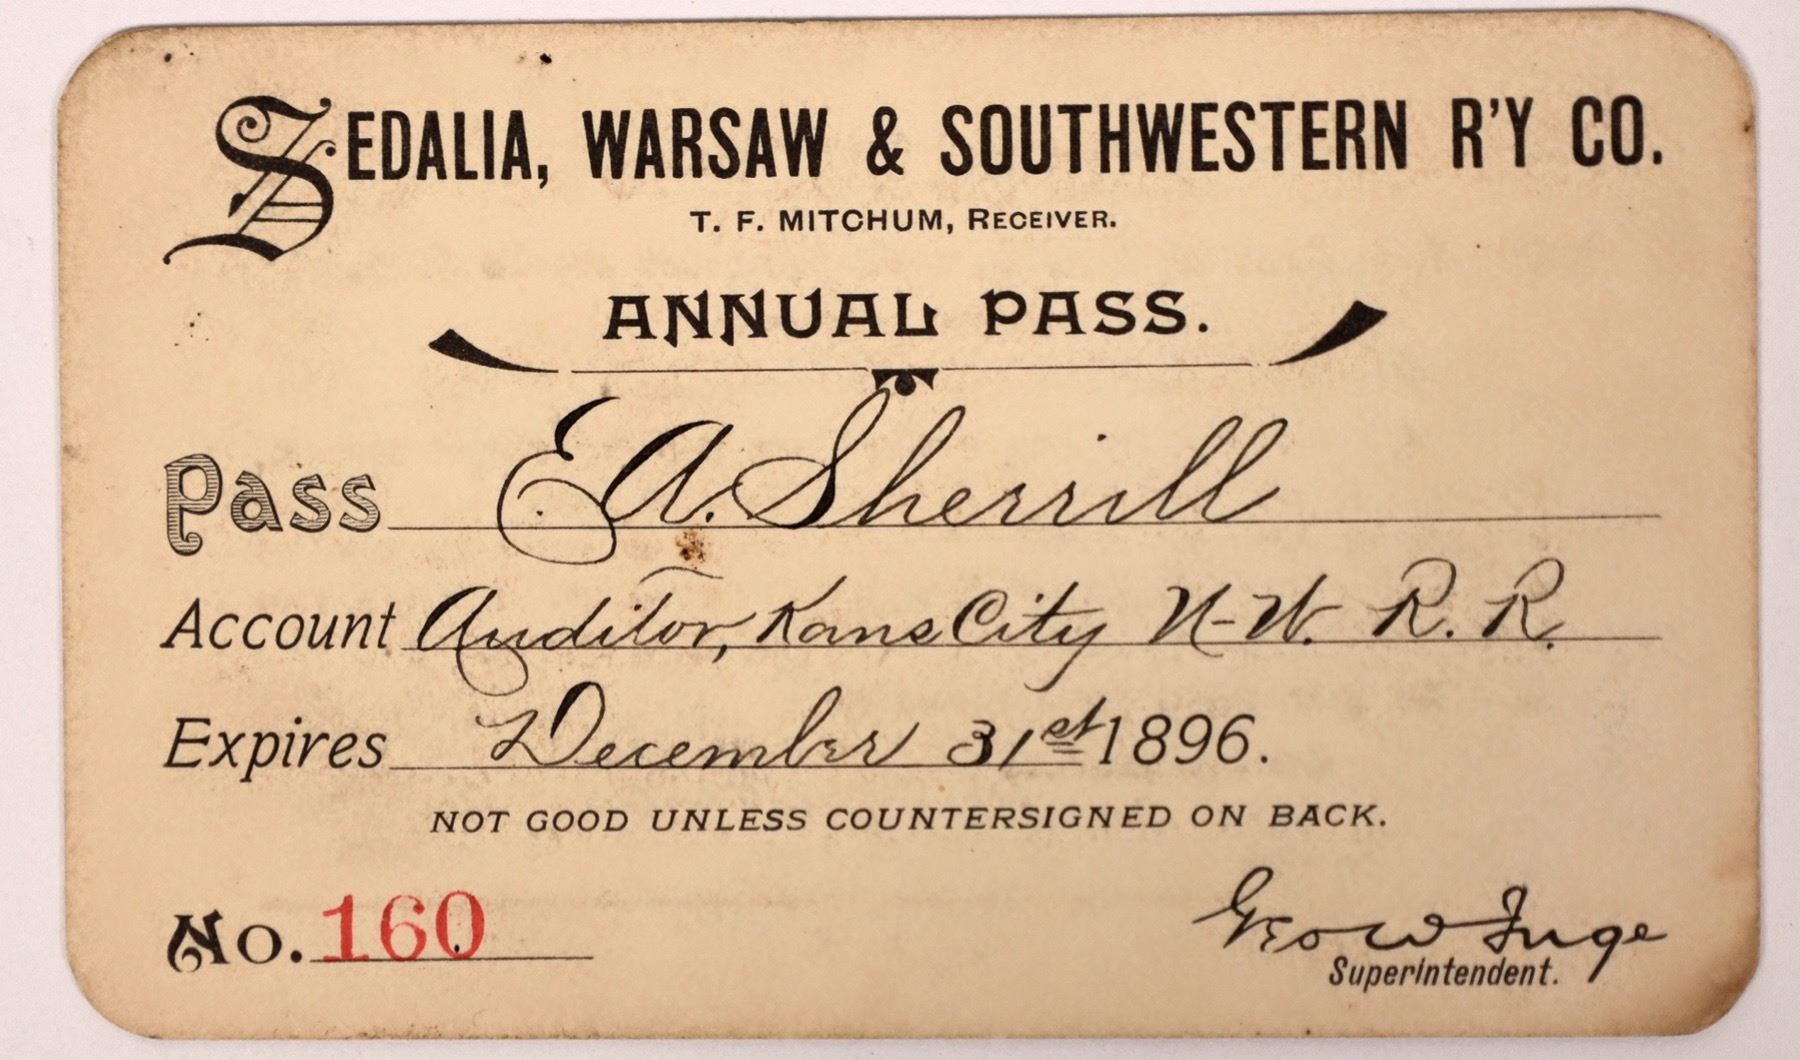 SEDALIA, WARSAW & SOUTHWESTERN R'Y CO.
T. F. MITCHUM, RECEIVER.
ANNUAL PASS.
Pass E A. Sherrill
Account Auditor, Kans City N-W. R. R.
Expires December 31st 1896.
NOT GOOD UNLESS COUNTERSIGNED ON BACK.
No. 160
Geo W Inge
Superintendent.